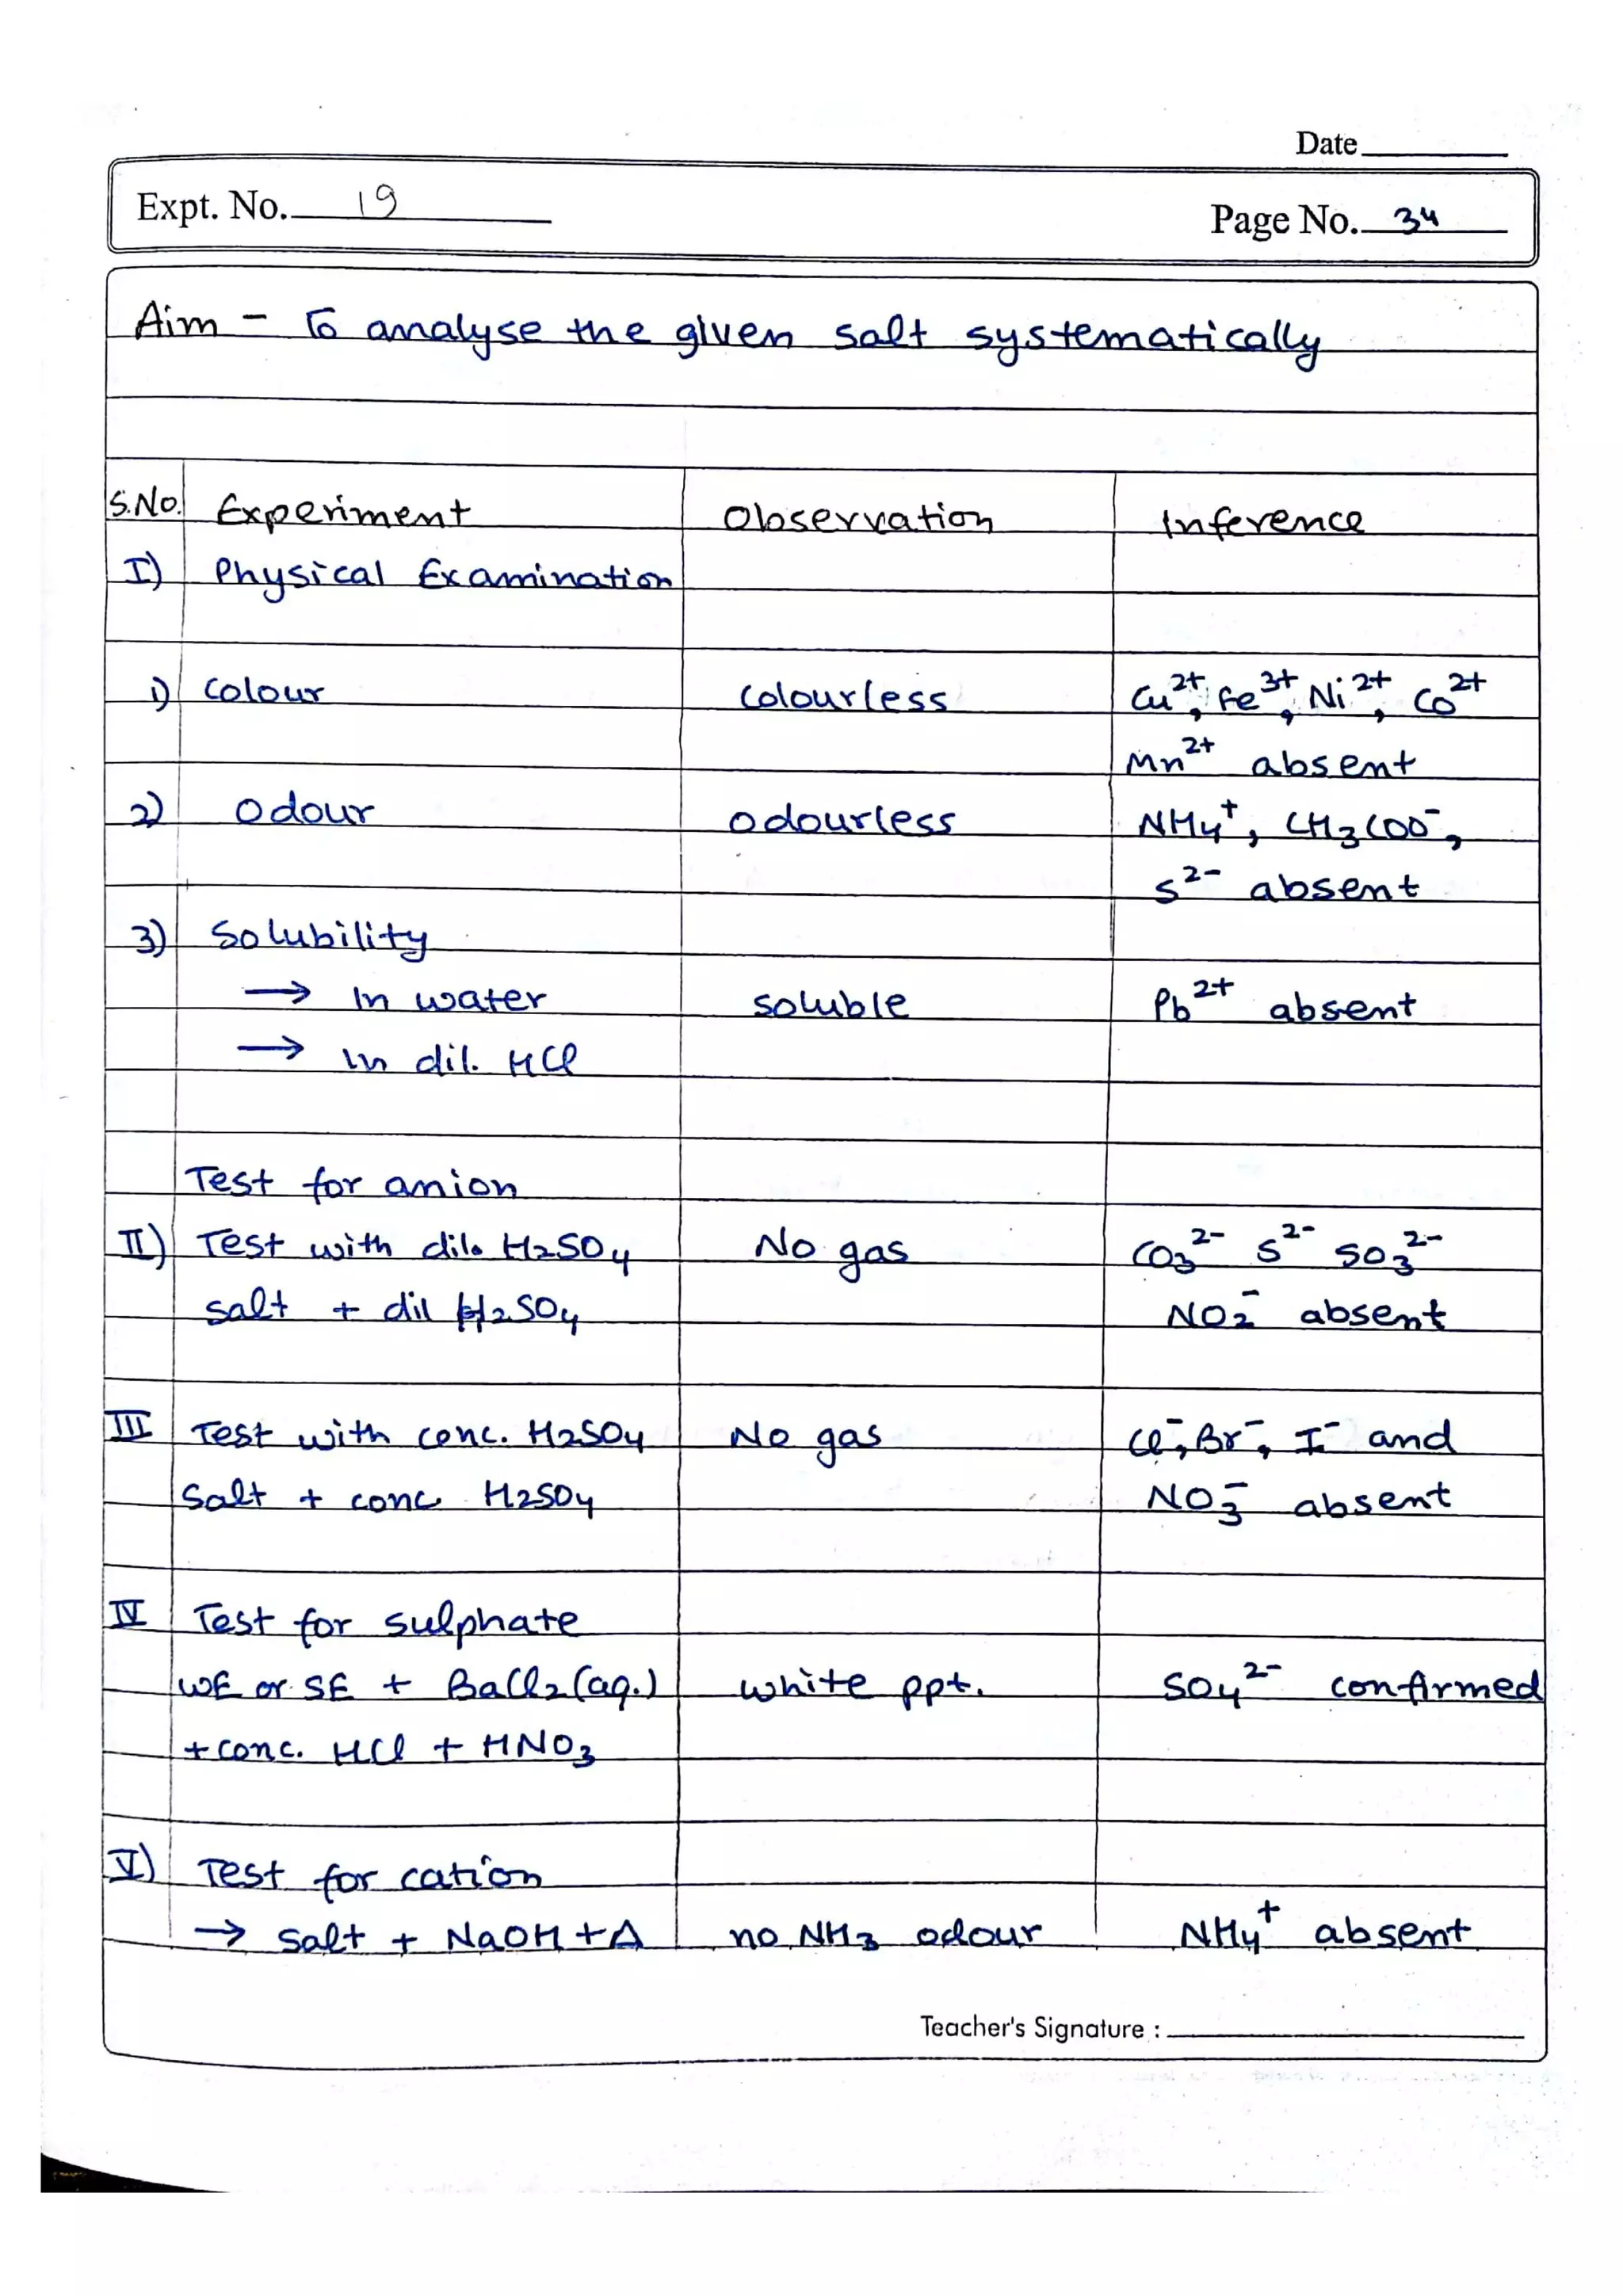 Date
Expt. No. 19
Page No. 34
Aim - To analyse the given salt systematically
S.No. Experiment Observation Inference
I) Physical Examination
1) Colour Colourless Cu²⁺, Fe³⁺, Ni²⁺, Co²⁺
Mn²⁺ absent
2) Odour Odourless NH₄⁺, CH₃COO⁻,
S²⁻ absent
3) Solubility
→ In water soluble Pb²⁺ absent
→ In dil. HCl
Test for anion
II) Test with dil. H₂SO₄ No gas CO₃²⁻ S²⁻ SO₃²⁻
salt + dil H₂SO₄ NO₂⁻ absent
III Test with conc. H₂SO₄ No gas Cl⁻, Br⁻, I⁻ and
Salt + conc H₂SO₄ NO₃⁻ absent
IV Test for sulphate
WE or SE + BaCl₂(aq.) white ppt. SO₄²⁻ confirmed
+ conc. HCl + HNO₃
V) Test for cation
→ Salt + NaOH + Δ no NH₃ odour NH₄⁺ absent
Teacher's Signature :